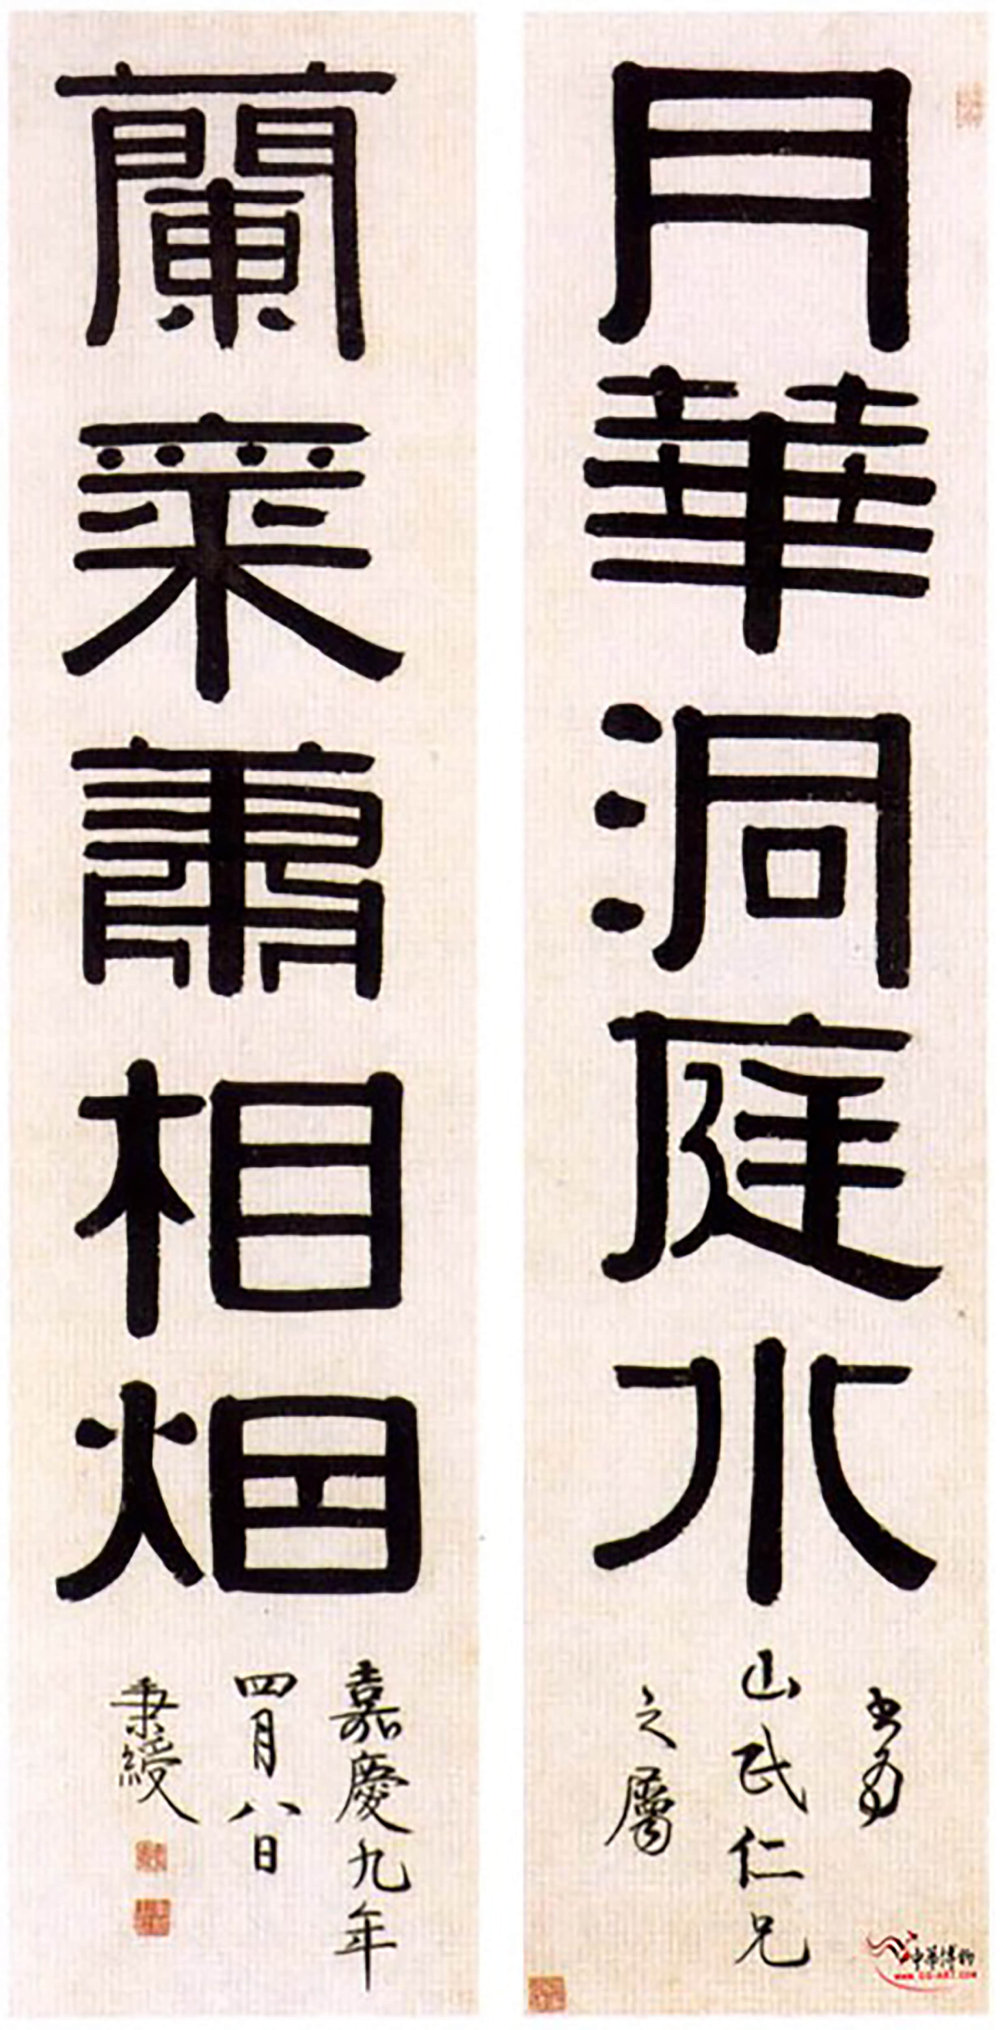 月華洞庭水
書為
山民仁兄
之屬
蘭蕭相烟
嘉慶九年
四月八日
秉綬
中華博物
WWW.GG-ART.COM